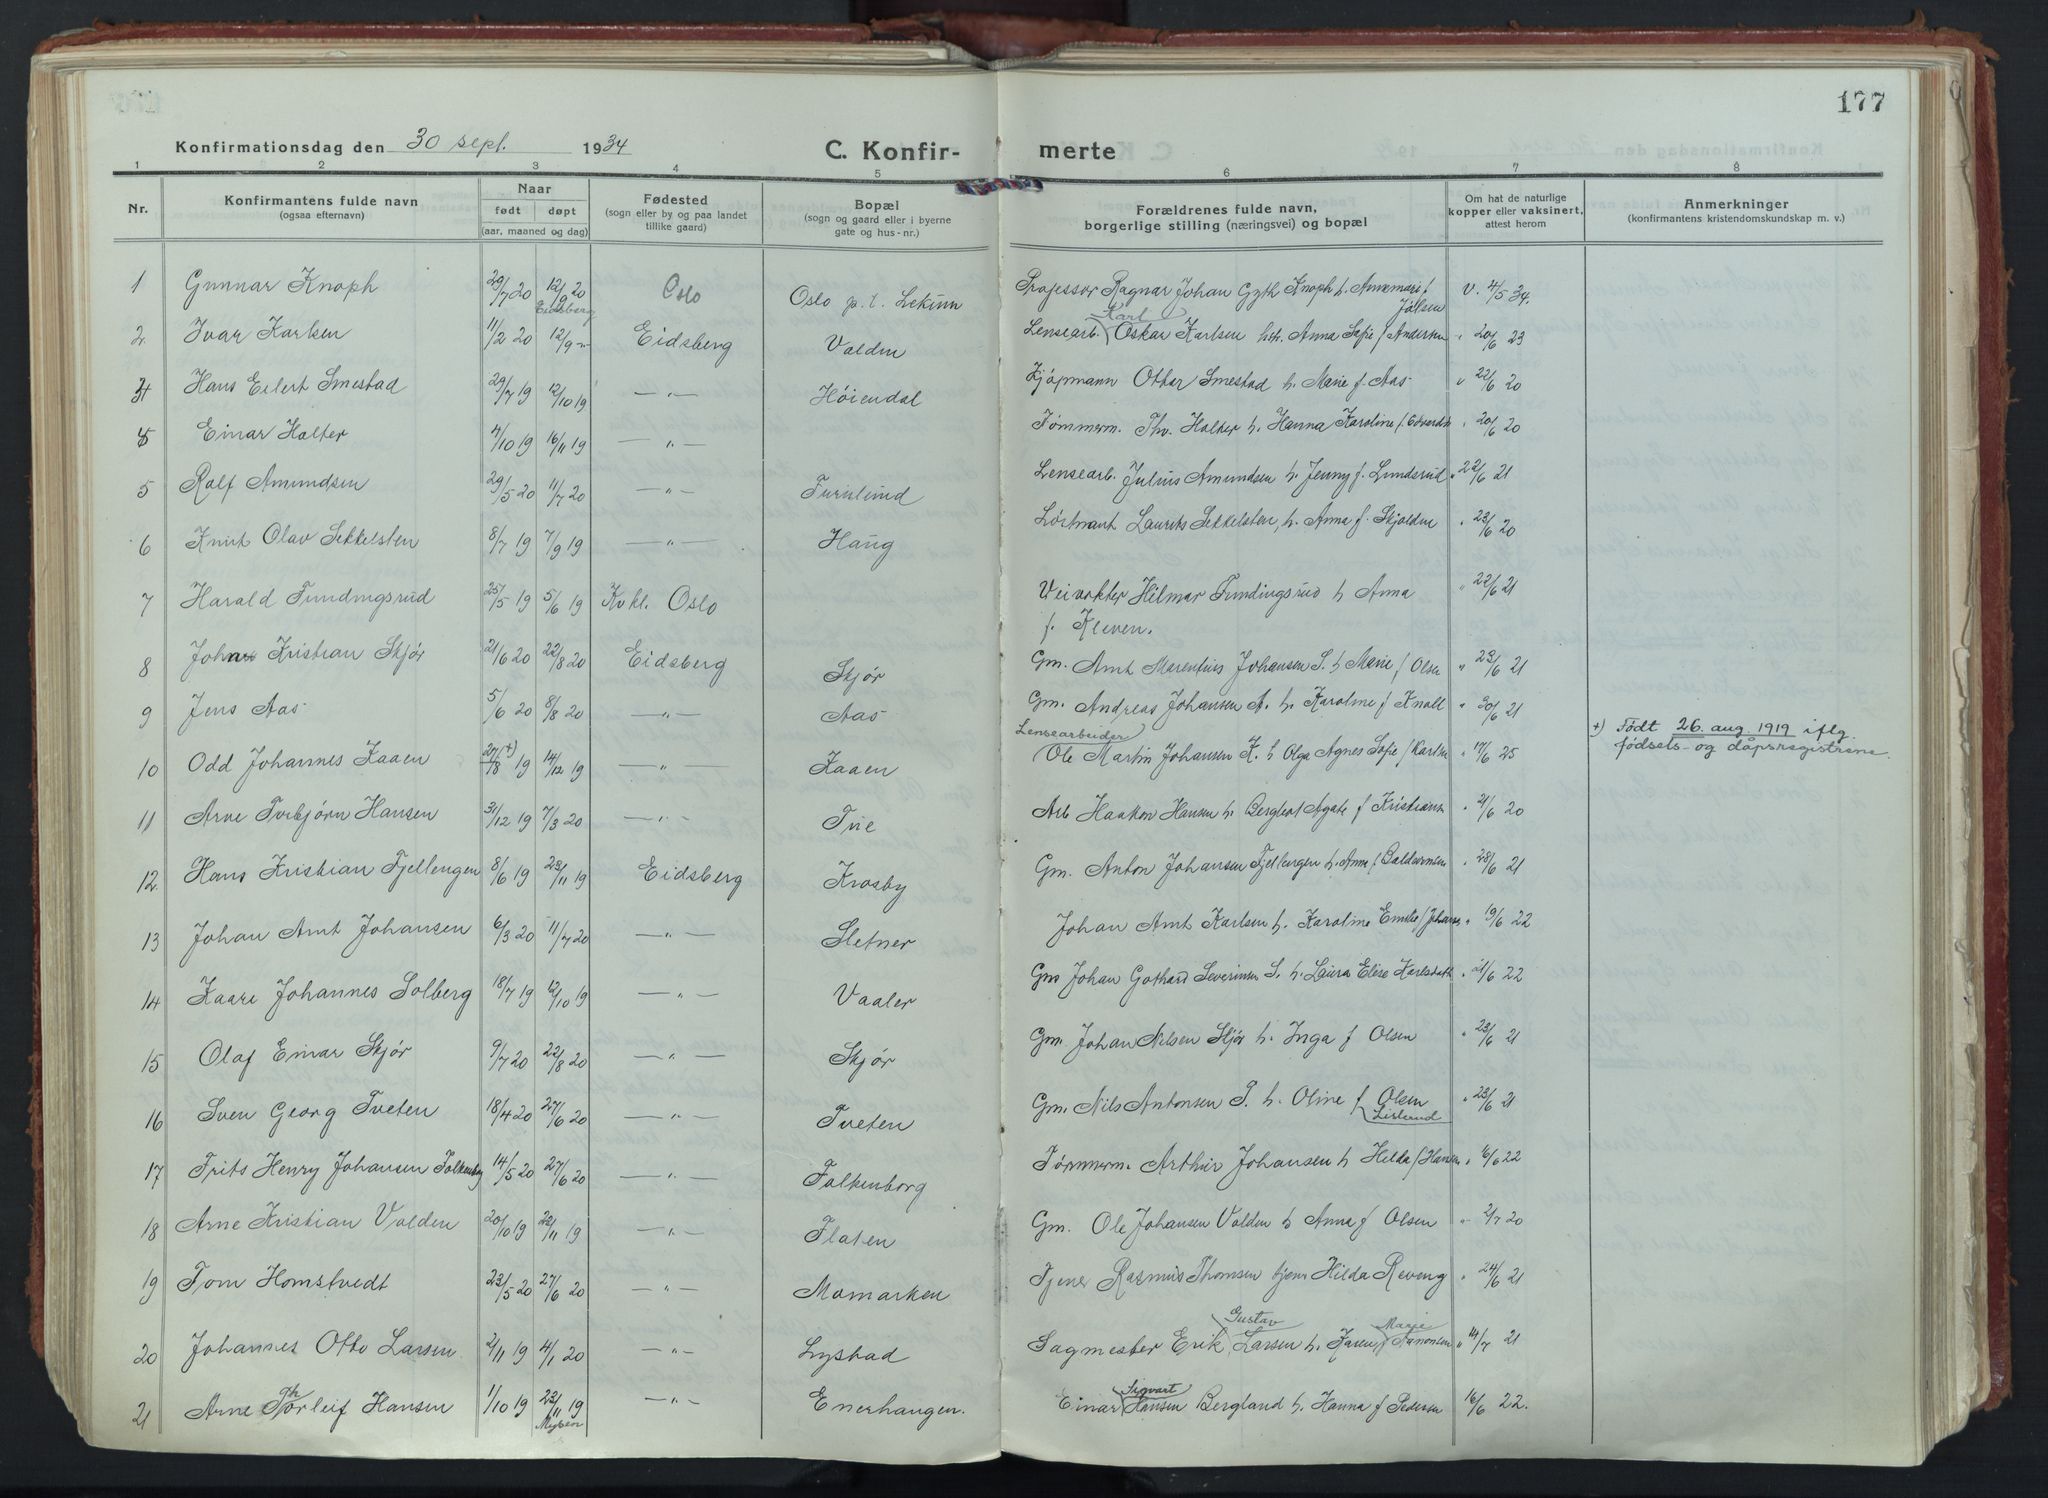 177
Konfirmationsdag den 30 sept. 1934
C. Konfir- merte
1 2 3 4 5 6 7 8
Nr.
Konfirmantens fulde navn
(ogsaa efternavn)
Naar
født døpt
(aar, maaned og dag)
Fødested
(sogn eller by og paa landet
tillike gaard)
Bopæl
(sogn og gaard eller i byerne
gate og hus-nr.)
Forældrenes fulde navn,
borgerlige stilling (næringsvei) og bopæl
Om hat de naturlige
kopper eller vaksinert,
attest herom
Anmerkninger
(konfirmantens kristendomskundskap m. v.)
1 Gunnar Knoph 29/7 20 12/9 20 Eidsberg Oslo Oslo p. t. Lekum Professor Ragnar Johan Gyth Knoph h. Annemari f Jølsen v. 4/5 34.
2. Ivar Karlsen 11/2 20 12/9 -"- Eidsberg Valdem Lensearb. Karl Oskar Karlsen h. Anna Sofie f Andersen " 20/6 23
3 Hans Eilert Smestad 29/7 19 12/10 19 -"- Høiendal Kjøpmann Ottar Smestad h. Marie f. Aas " 22/6 20
4 Einar Holter 4/10 19 16/11 19 -"- Tømmerm. Thv. Holter h. Hanna Karoline f. Edvards. " 20/6 20
5 Rolf Amundsen 29/5 20 11/7 20 -"- Furulund Lensearb. Julius Amundsen h. Jenny f. Lundsrud " 22/6 21
6 Knut Olav Sekkelsten 8/7 19 7/9 19 -"- Haug Løitnant Laurits Sekkelsten, h. Anna f. Skjolden " 23/6 20
7 Harald Fundingsrud 25/5 19 5/6 19 Kvkl. Oslo Veivokter Hilmar Fundingsrud h Anna " 22/6 21
f. Kleven.
8 Johan Kristian Skjør 21/6 20 22/8 20 Eidsberg Skjør Gm. Arnt Marentius Johansen S. h Marie f Olsen " 23/6 21
9 Jens Aas 5/6 20 8/8 20 -"- Aas Gm. Andreas Johansen A. h. Karoline f Knoll " 30/6 21
10 Odd Johannes Kaaen 27/8 +) 19 14/12 19 -"- Kaaen Lensearbeider Ole Martin Johansen K. h Olga Agnes Sofie f Karlsen " 17/6 25 +) Født 26. aug 1919 iflg.
fødsels- og dåpsregistrene.
11 Arne Torbjørn Hansen 31/12 19 7/3 20 -"- Tue Arb Haakon Hansen h. Bergliot Agate f Kristians " 21/6 20
12. Hans Kristian Fjellengen 8/6 19 23/11 19 Eidsberg Krosby Gm. Anton Johansen Fjellengen h. Anna f Baldersen " 28/6 21
13 Johan Arnt Johansen 6/3 20 11/7 20 -"- Sletner Johan Arnt Karlsen h. Karoline Emilie f Johans " 19/6 22
14 Kaare Johannes Solberg 18/7 19 12/10 19 -"- Vaaler Gm Johan Gothard Severinsen S. h. Laura Elise Karlsdatt. " 21/6 22
15 Olaf Einar Skjør 9/7 20 22/8 20 -"- Skjør Gm. Johan Nilsen Skjør h. Inga f Olsen " 23/6 21
16 Sven Georg Tveten 18/4 20 27/6 20 -"- Tveten Gm. Nils Antonsen T. h. Oline f Olsen Lislerud " 23/6 21
17 Frits Henry Johansen Falkenborg 14/5 20 27/6 20 -"- Falkenborg Tømmerm. Arthur Johansen h Hilda f Hansen " 16/6 22
18 Arne Kristian Valden 20/10 19 23/11 19 -"- Flaten Gm. Ole Johansen Valden h Anna f Olsen " 2/7 20
19 Tom Homstvedt 23/5 20 27/6 20 -"- Momarken Tjener Rasmus Thomsen tjen. Hilda Reveng " 24/6 21
20 Johannes Otto Larsen 2/11 19 4/1 20 -"- Lystad Sagmester Erik Gustav Larsen h. Karen Marie f Aanonsen " 14/7 21
21 Arne Thorleif Hansen 1/10 19 23/11 19 Mysen -"- Enerhaugen. Einar Sigvart Hansen Bergland h. Hanna f Pedersen 16/6 22.